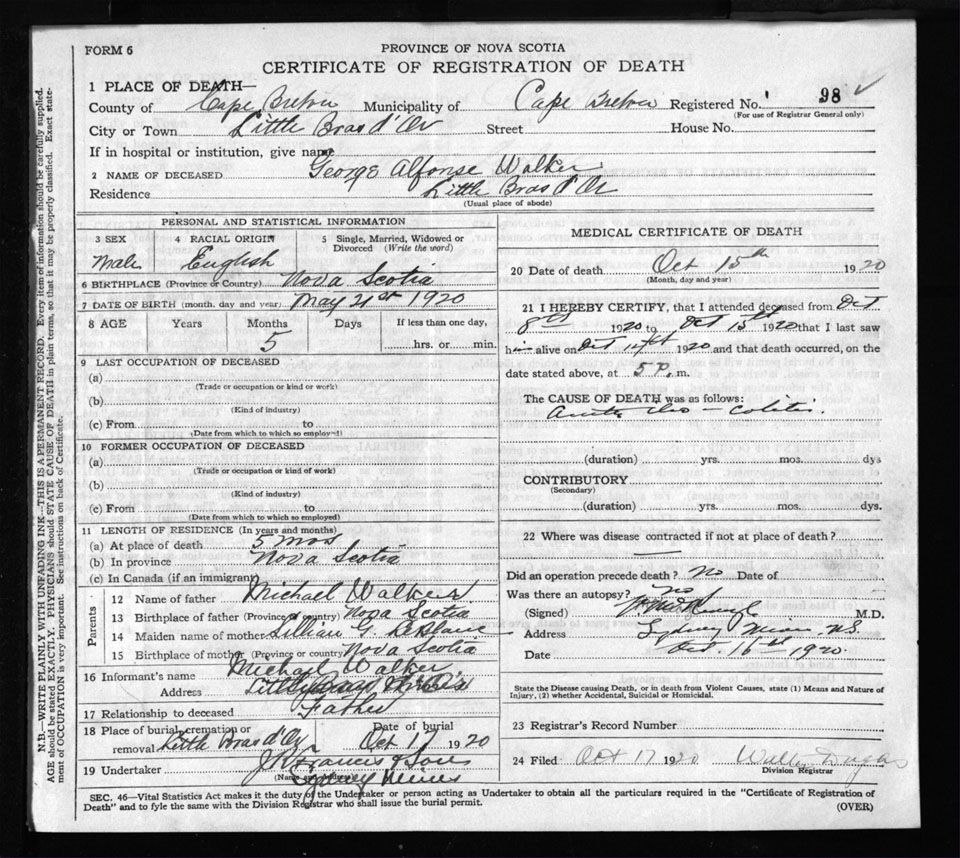 FORM 6
PROVINCE OF NOVA SCOTIA
CERTIFICATE OF REGISTRATION OF DEATH
1 PLACE OF DEATH—
County of Cape Breton Municipality of Cape Breton Registered No. 98
(For use of Registrar General only)
City or Town Little Bras d'Or Street House No.
If in hospital or institution, give name
2 NAME OF DECEASED George Alfonse Walker
Residence Little Bras d'Or
(Usual place of abode)
PERSONAL AND STATISTICAL INFORMATION
3 SEX 4 RACIAL ORIGIN 5 Single, Married, Widowed or
Divorced (Write the word)
Male English
6 BIRTHPLACE (Province or Country) Nova Scotia
7 DATE OF BIRTH (month, day and year) May 21st 1920
8 AGE Years Months Days If less than one day,
5 hrs. or min.
9 LAST OCCUPATION OF DECEASED
(a)
(Trade or occupation or kind or work)
(b)
(Kind of industry)
(c) From to
(Date from which to which so employed)
10 FORMER OCCUPATION OF DECEASED
(a)
(Trade or occupation or kind of work)
(b)
(Kind of industry)
(c) From to
(Date from which to which so employed)
11 LENGTH OF RESIDENCE (In years and months)
(a) At place of death 5 mos
(b) In province Nova Scotia
(c) In Canada (if an immigrant)
Parents
12 Name of father Michael Walker
13 Birthplace of father (Province or country) Nova Scotia
14 Maiden name of mother Lillian G. LeBlanc
15 Birthplace of mother (Province or country) Nova Scotia
16 Informant's name Michael Walker
Address Little Bras d'Or
17 Relationship to deceased Father
18 Place of burial, cremation or Date of burial
removal Little Bras d'Or Oct 17 1920
19 Undertaker Francis & Sons
Sydney Mines
MEDICAL CERTIFICATE OF DEATH
20 Date of death Oct 15th 1920
(Month, day and year)
21 I HEREBY CERTIFY, that I attended deceased from Oct
8th 1920 to Oct 15th 1920 that I last saw
him alive on Oct 14th 1920 and that death occurred, on the
date stated above, at 5 P. m.
The CAUSE OF DEATH was as follows:
Acute Ileo-colitis.
(duration) yrs. mos. dys
CONTRIBUTORY
(Secondary)
(duration) yrs. mos. dys.
22 Where was disease contracted if not at place of death?
Did an operation precede death? No Date of
Was there an autopsy? No
(Signed) M.D.
Address Sydney Mines, N.S.
Date Oct. 16th 1920.
State the Disease causing Death, or in death from Violent Causes, state (1) Means and Nature of
Injury, (2) whether Accidental, Suicidal or Homicidal.
23 Registrar's Record Number
24 Filed Oct 17 1920 Walter
Division Registrar
SEC. 46—Vital Statistics Act makes it the duty of the Undertaker or person acting as Undertaker to obtain all the particulars required in the "Certificate of Registration of
Death" and to fyle the same with the Division Registrar who shall issue the burial permit. (OVER)
N.B.—WRITE PLAINLY WITH UNFADING INK—THIS IS A PERMANENT RECORD. Every item of information should be carefully supplied.
AGE should be stated EXACTLY. PHYSICIANS should STATE CAUSE OF DEATH in plain terms, so that it may be properly classified. Exact state-
ment of OCCUPATION is very important. See instructions on back of Certificate.